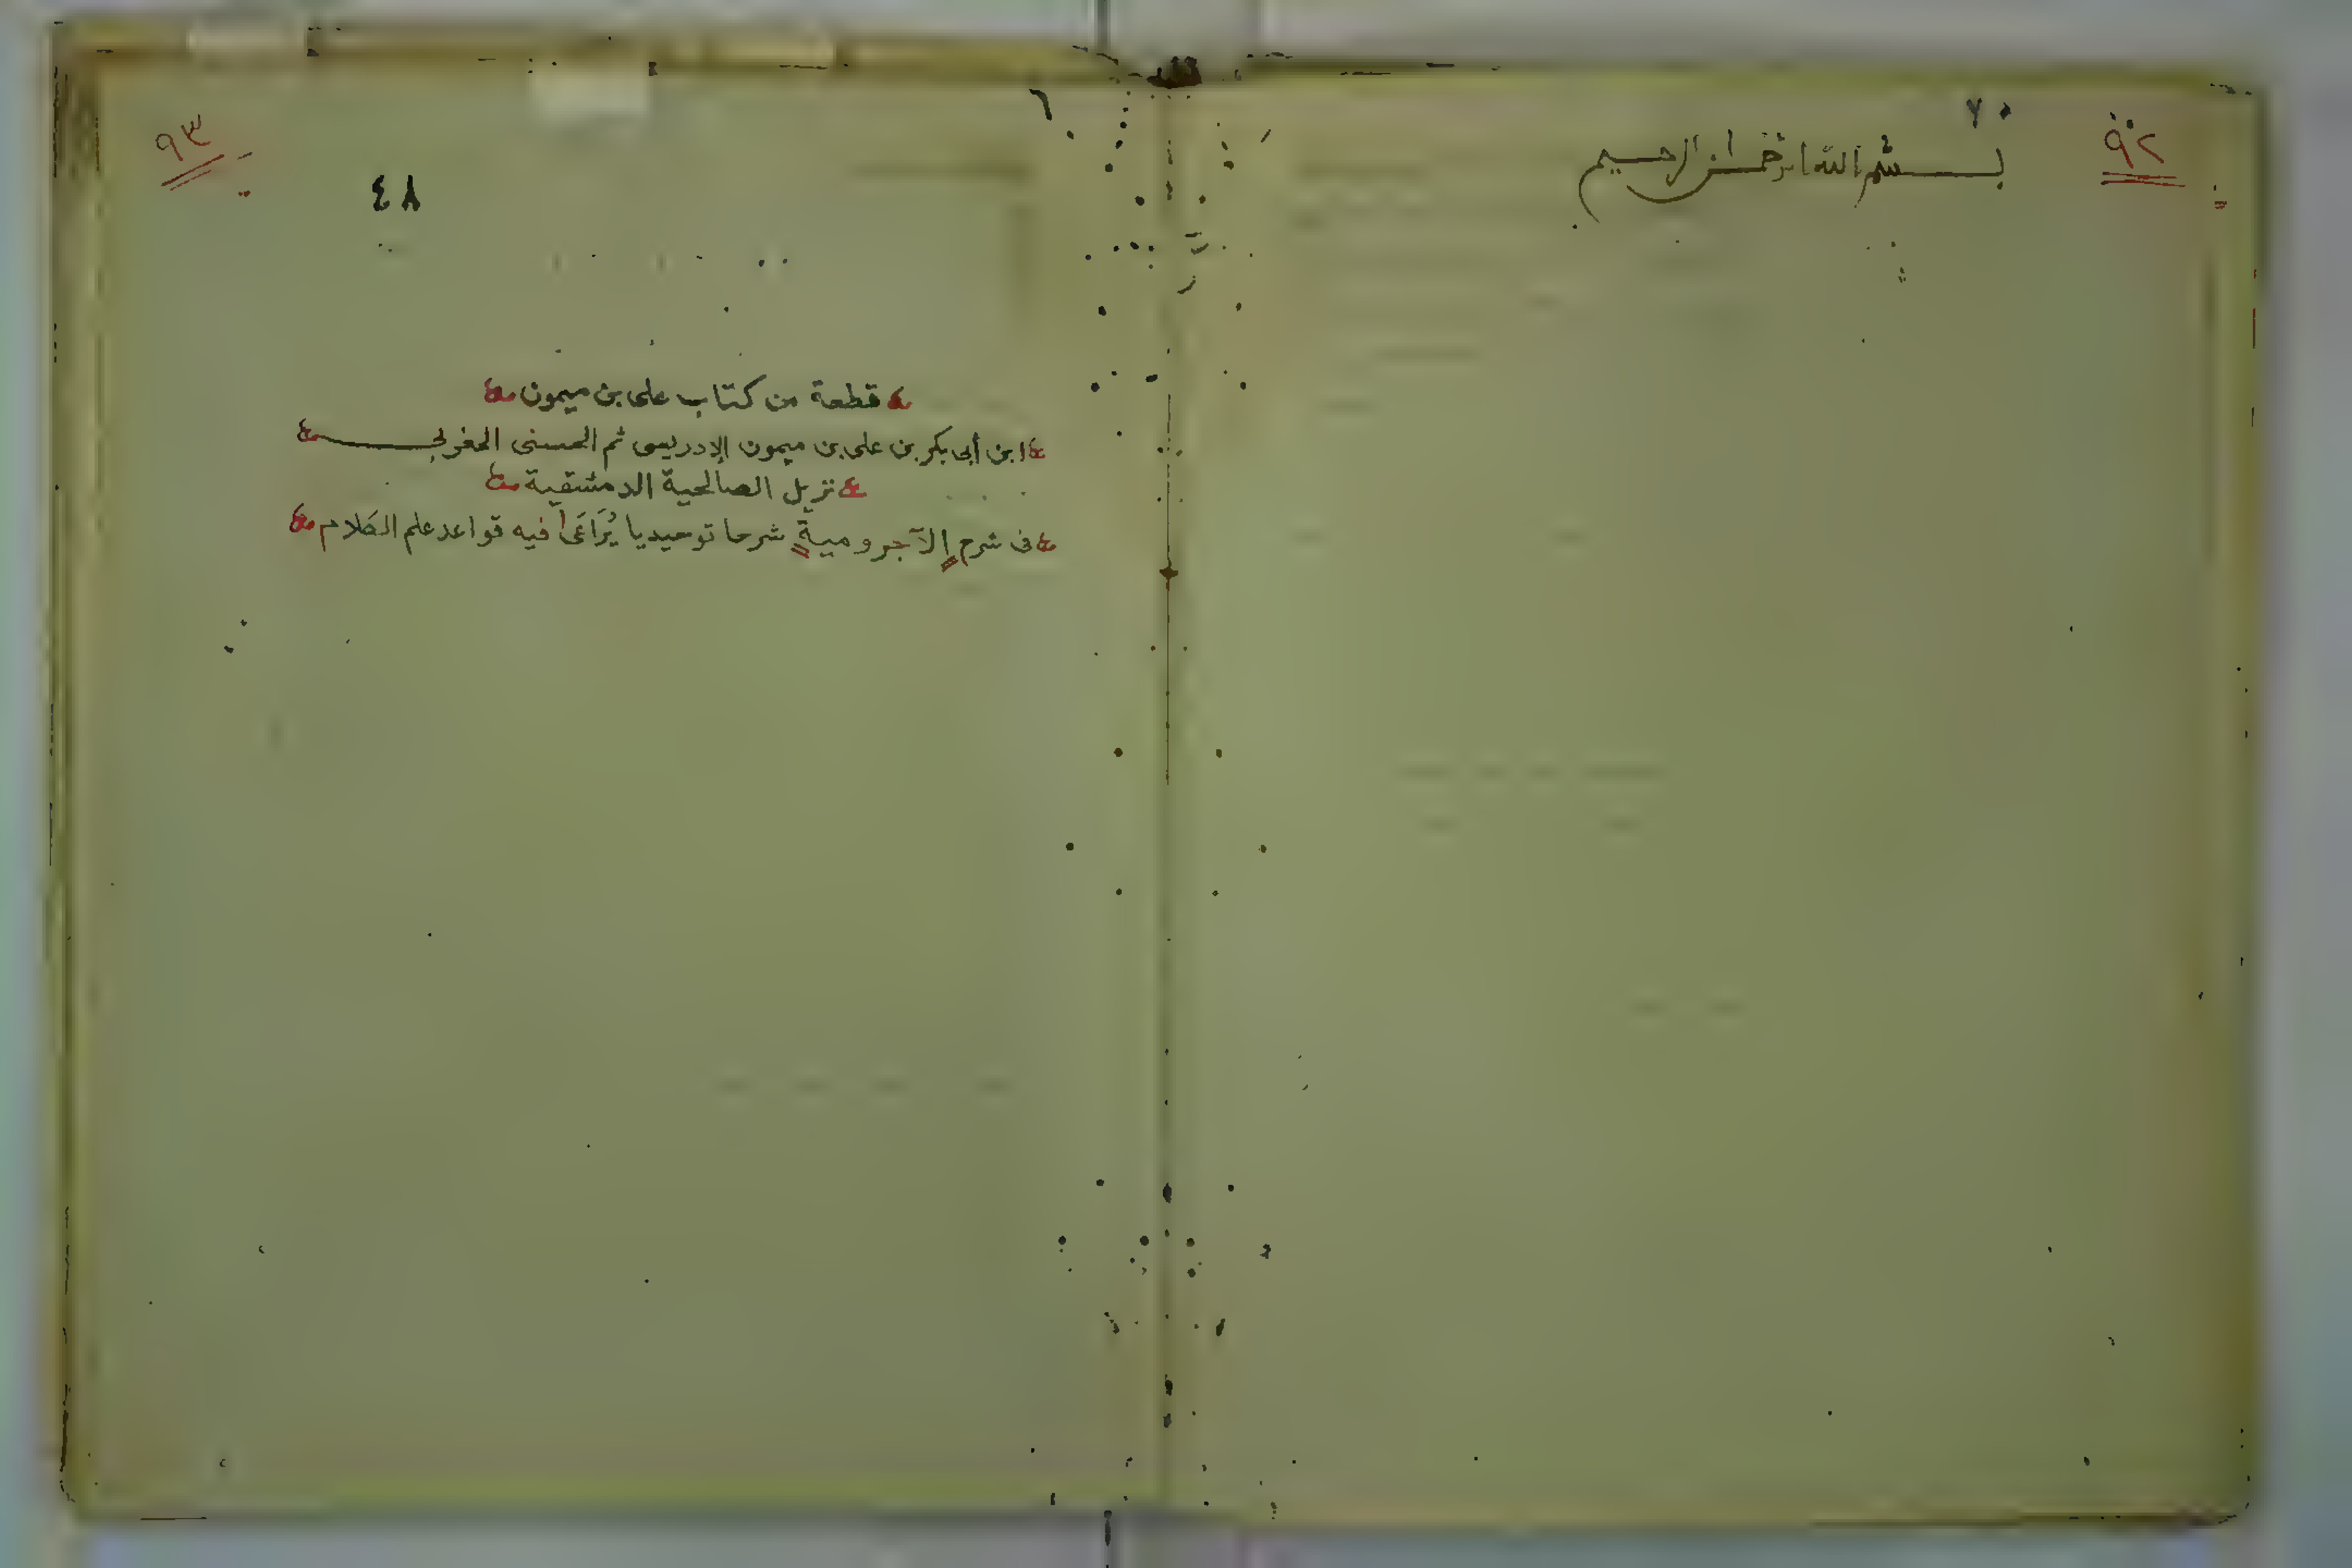 ٩٢
بسم الله الرحمن الرحيم
٩٣
٤٨
قطعة من كتاب على بن ميمون
ابن أبى بكر بن على بن ميمون الإدريسى ثم الحسنى المغربى
نزيل الصالحية الدمشقية
فى شرح الآجرومية شرحا توحيديا يُرَاعَى فيه قواعد علم الكلام